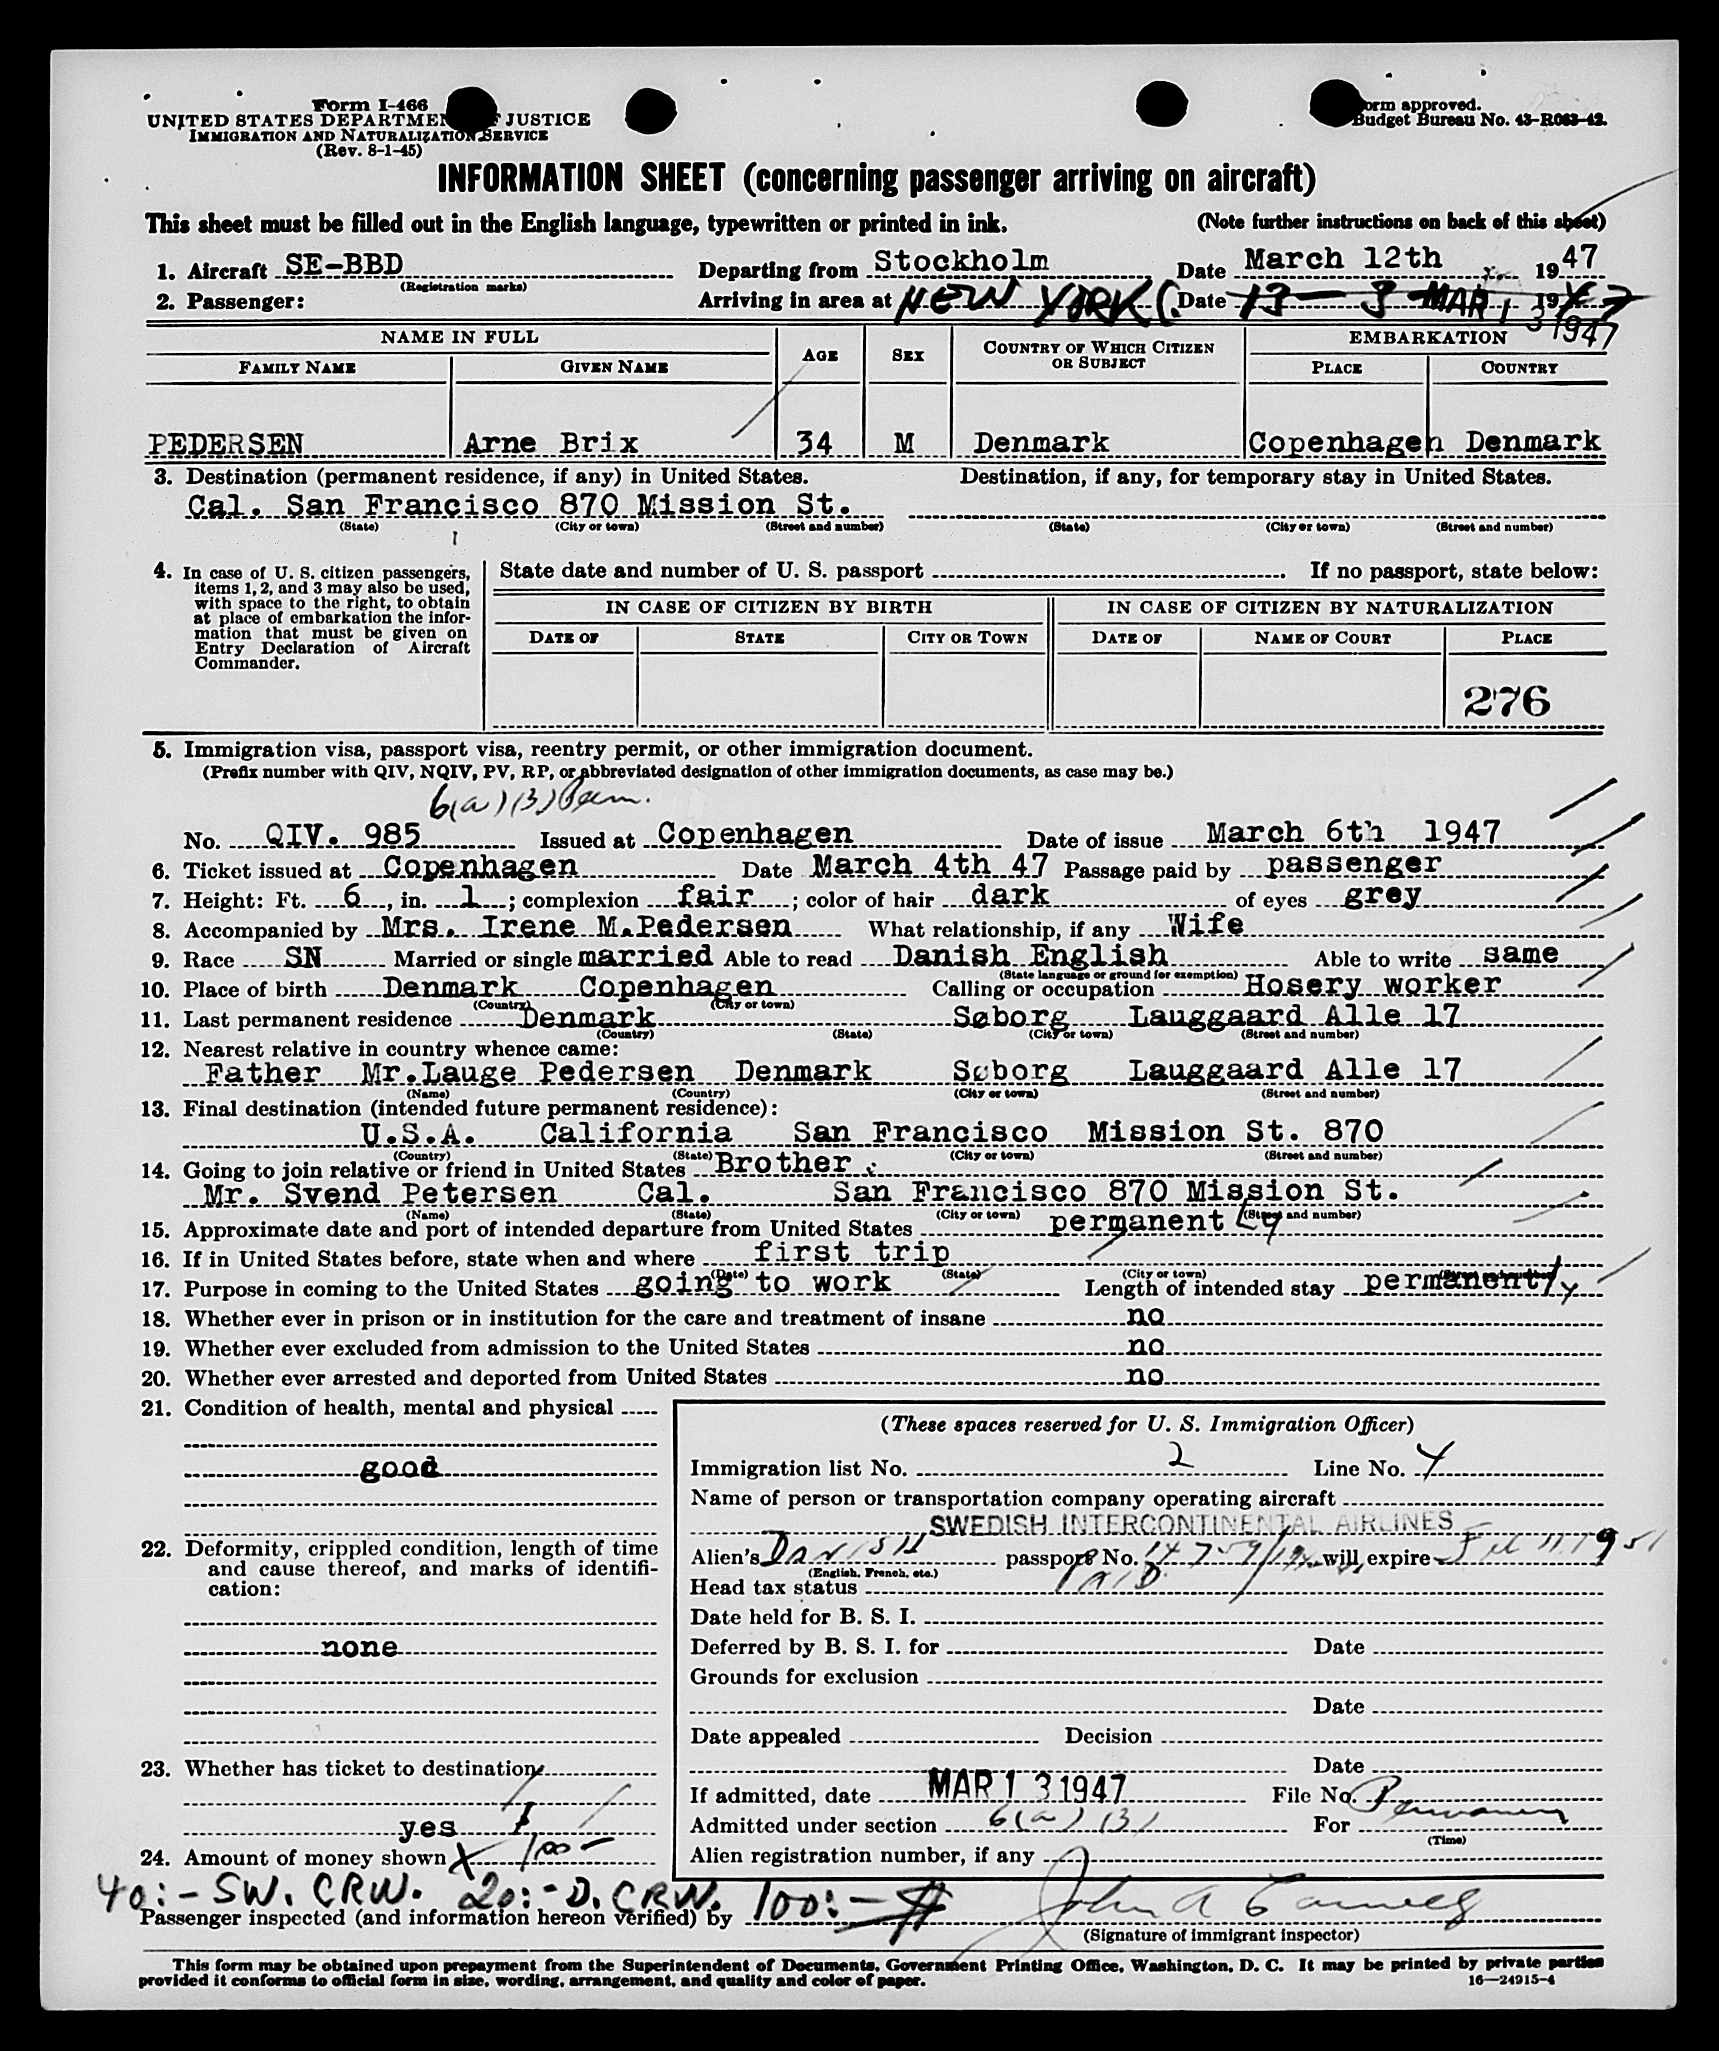 Form I-466
UNITED STATES DEPARTMENT OF JUSTICE
IMMIGRATION AND NATURALIZATION SERVICE
(Rev. 8-1-45)
Form approved.
Budget Bureau No. 43-R063-42.
INFORMATION SHEET (concerning passenger arriving on aircraft)
This sheet must be filled out in the English language, typewritten or printed in ink. (Note further instructions on back of this sheet)
1. Aircraft SE-BBD Departing from Stockholm Date March 12th 1947
(Registration marks)
2. Passenger: Arriving in area at NEW YORK Date 13-3 1947
MAR 13 1947
NAME IN FULL AGE SEX COUNTRY OF WHICH CITIZEN OR SUBJECT EMBARKATION
FAMILY NAME GIVEN NAME PLACE COUNTRY
PEDERSEN Arne Brix 34 M Denmark Copenhagen Denmark
3. Destination (permanent residence, if any) in United States. Destination, if any, for temporary stay in United States.
Cal. San Francisco 870 Mission St.
(State) (City or town) (Street and number) (State) (City or town) (Street and number)
4. In case of U. S. citizen passengers, items 1, 2, and 3 may also be used, with space to the right, to obtain at place of embarkation the information that must be given on Entry Declaration of Aircraft Commander.
State date and number of U. S. passport If no passport, state below:
IN CASE OF CITIZEN BY BIRTH IN CASE OF CITIZEN BY NATURALIZATION
DATE OF STATE CITY OR TOWN DATE OF NAME OF COURT PLACE
276
5. Immigration visa, passport visa, reentry permit, or other immigration document.
(Prefix number with QIV, NQIV, PV, RP, or abbreviated designation of other immigration documents, as case may be.)
6(a)(3) Perm.
No. QIV. 985 Issued at Copenhagen Date of issue March 6th 1947
6. Ticket issued at Copenhagen Date March 4th 47 Passage paid by passenger
7. Height: Ft. 6, in. 1; complexion fair; color of hair dark of eyes grey
8. Accompanied by Mrs. Irene M.Pedersen What relationship, if any Wife
9. Race SN Married or single married Able to read Danish English Able to write same
(State language or ground for exemption)
10. Place of birth Denmark Copenhagen Calling or occupation Hosery worker
(Country) (City or town)
11. Last permanent residence Denmark Søborg Lauggaard Alle 17
(Country) (State) (City or town) (Street and number)
12. Nearest relative in country whence came:
Father Mr.Lauge Pedersen Denmark Søborg Lauggaard Alle 17
(Name) (Country) (City or town) (Street and number)
13. Final destination (intended future permanent residence):
U.S.A. California San Francisco Mission St. 870
(Country) (State) (City or town) (Street and number)
14. Going to join relative or friend in United States Brother :
Mr. Svend Petersen Cal. San Francisco 870 Mission St.
(Name) (State) (City or town) (Street and number)
15. Approximate date and port of intended departure from United States permanent Ly
16. If in United States before, state when and where first trip
(Date) (State) (City or town) (Street and number)
17. Purpose in coming to the United States going to work Length of intended stay permanently
18. Whether ever in prison or in institution for the care and treatment of insane no
19. Whether ever excluded from admission to the United States no
20. Whether ever arrested and deported from United States no
21. Condition of health, mental and physical
good
22. Deformity, crippled condition, length of time and cause thereof, and marks of identification:
none
23. Whether has ticket to destination
yes
24. Amount of money shown 100-
40:- SW. CRW. 20:- D. CRW. 100:- $
(These spaces reserved for U. S. Immigration Officer)
Immigration list No. 2 Line No. 4
Name of person or transportation company operating aircraft
SWEDISH INTERCONTINENTAL AIRLINES
Alien's DANISH passport No. will expire Feb 11 1951
(English, French, etc.)
Head tax status PAID
Date held for B. S. I.
Deferred by B. S. I. for Date
Grounds for exclusion
Date
Date appealed Decision
Date
If admitted, date MAR 13 1947 File No.
Admitted under section 6(a)(3) For Permanent
(Time)
Alien registration number, if any
Passenger inspected (and information hereon verified) by John A
(Signature of immigrant inspector)
This form may be obtained upon prepayment from the Superintendent of Documents, Government Printing Office, Washington, D. C. It may be printed by private parties
provided it conforms to official form in size, wording, arrangement, and quality and color of paper. 16—24915-4